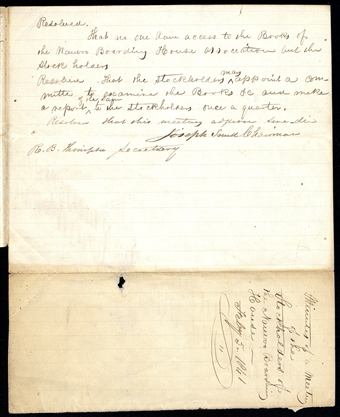 Resolved.
That no one have access to the Books of
the Nauvoo Boarding House association but the
Stock holders
Resolved That the Stockholders may appoint a com
mittee to examine the Books &c and make
a report of the same to the Stockholders once a quarter.
Resolved that this meeting adjourn sine die
Joseph Smith Chairman
R. B. Thompson Secretary
Minutes of a Meeting
of the
Stockholders of
the Nauvoo Boarding
House
Feby 5. 1841